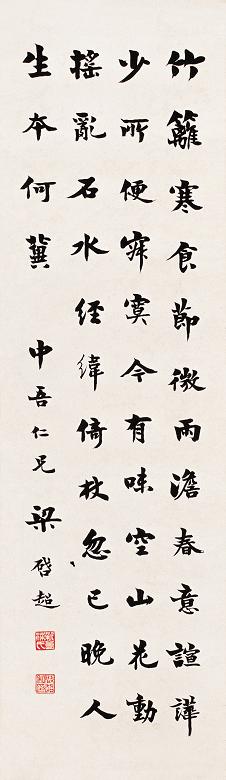 竹籬寒食節微雨澹春意諠譁
少所便寂寞今有味空山花動
搖亂石水經緯倚杖忽已晚人
生本何冀 中吾仁兄 梁啓超